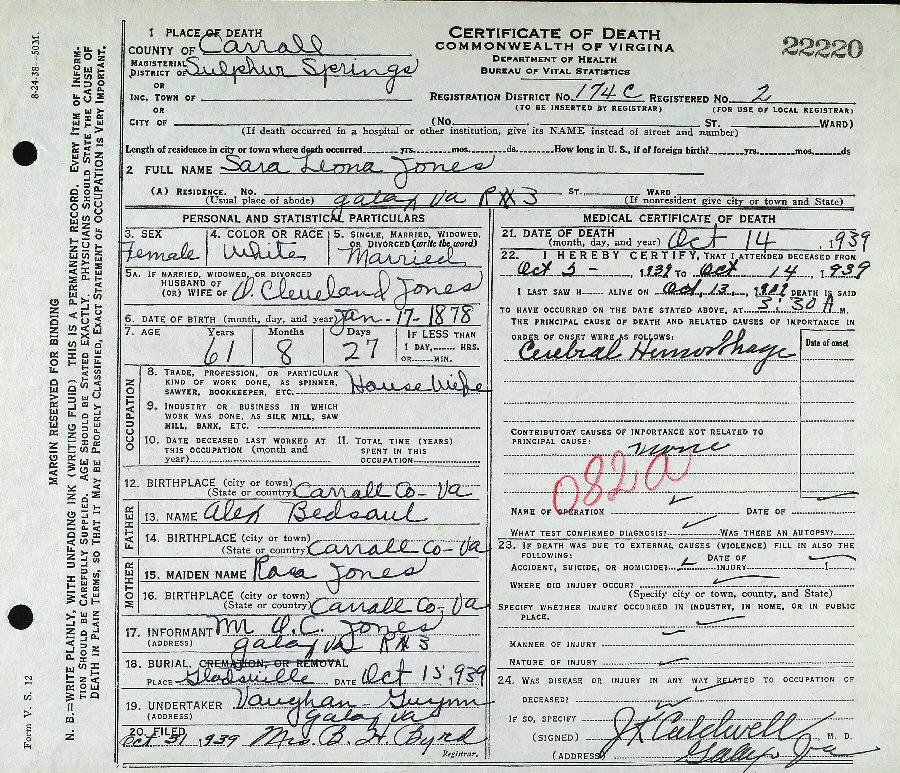 1 PLACE OF DEATH
COUNTY OF Carroll
MAGISTERIAL DISTRICT OF Sulphur Springs
OR
INC. TOWN OF
CITY OF
CERTIFICATE OF DEATH
COMMONWEALTH OF VIRGINIA
DEPARTMENT OF HEALTH
BUREAU OF VITAL STATISTICS
22220
REGISTRATION DISTRICT NO. 174C REGISTERED NO. 2
(TO BE INSERTED BY REGISTRAR) (FOR USE OF LOCAL REGISTRAR)
(No. ST. WARD)
(If death occurred in a hospital or other institution, give its NAME instead of street and number)
Length of residence in city or town where death occurred yrs. mos. ds. How long in U. S., if of foreign birth? yrs. mos. ds
2 FULL NAME Sara Leona Jones
(A) RESIDENCE. No. Galax Va R#3 ST. WARD
(Usual place of abode) (If nonresident give city or town and State)
PERSONAL AND STATISTICAL PARTICULARS
3. SEX Female
4. COLOR OR RACE White
5. SINGLE, MARRIED, WIDOWED, OR DIVORCED (write the word) Married
5A. IF MARRIED, WIDOWED, OR DIVORCED
HUSBAND OF
(OR) WIFE OF O. Cleveland Jones
6. DATE OF BIRTH (month, day, and year) Jan-17-1878
7. AGE Years Months Days IF LESS THAN
61 8 27 1 DAY, HRS.
OR MIN.
OCCUPATION
8. TRADE, PROFESSION, OR PARTICULAR
KIND OF WORK DONE, AS SPINNER,
SAWYER, BOOKKEEPER, ETC. House Wife
9. INDUSTRY OR BUSINESS IN WHICH
WORK WAS DONE, AS SILK MILL, SAW
MILL, BANK, ETC.
10. DATE DECEASED LAST WORKED AT
THIS OCCUPATION (month and
year)
11. TOTAL TIME (YEARS)
SPENT IN THIS
OCCUPATION
12. BIRTHPLACE (city or town)
(State or country) Carroll Co- Va
FATHER
13. NAME Alex Bedsaul
14. BIRTHPLACE (city or town)
(State or country) Carroll Co- Va
MOTHER
15. MAIDEN NAME Rosa Jones
16. BIRTHPLACE (city or town)
(State or country) Carroll Co- Va
17. INFORMANT Mr O.C. Jones
(ADDRESS) Galax Va R#3
18. BURIAL, CREMATION, OR REMOVAL
PLACE Gladsville DATE Oct 15 1939
19. UNDERTAKER Vaughan-Guynn
(ADDRESS) Galax Va
20. FILED Oct 31 1939 Mrs. B. H. Byrd
Registrar.
MEDICAL CERTIFICATE OF DEATH
21. DATE OF DEATH
(month, day, and year) Oct 14, 1939
22. I HEREBY CERTIFY, THAT I ATTENDED DECEASED FROM
Oct 5-, 1939 TO Oct 14, 1939
I LAST SAW H ALIVE ON Oct 13, 1939 DEATH IS SAID
TO HAVE OCCURRED ON THE DATE STATED ABOVE, AT 3:30 A M.
THE PRINCIPAL CAUSE OF DEATH AND RELATED CAUSES OF IMPORTANCE IN
ORDER OF ONSET WERE AS FOLLOWS: Date of onset
Cerebral Hemorrhage
CONTRIBUTORY CAUSES OF IMPORTANCE NOT RELATED TO
PRINCIPAL CAUSE:
None
082a
NAME OF OPERATION DATE OF
WHAT TEST CONFIRMED DIAGNOSIS? WAS THERE AN AUTOPSY?
23. IF DEATH WAS DUE TO EXTERNAL CAUSES (VIOLENCE) FILL IN ALSO THE
FOLLOWING: DATE OF
ACCIDENT, SUICIDE, OR HOMICIDE? INJURY
WHERE DID INJURY OCCUR?
(Specify city or town, county, and State)
SPECIFY WHETHER INJURY OCCURRED IN INDUSTRY, IN HOME, OR IN PUBLIC
PLACE.
MANNER OF INJURY
NATURE OF INJURY
24. WAS DISEASE OR INJURY IN ANY WAY RELATED TO OCCUPATION OF
DECEASED?
IF SO, SPECIFY
(SIGNED) J K Caldwell, M. D.
(ADDRESS) Galax Va
8-24-38--50M.
MARGIN RESERVED FOR BINDING
N. B.=WRITE PLAINLY, WITH UNFADING INK (WRITING FLUID) THIS IS A PERMANENT RECORD. EVERY ITEM OF INFORM-
TION SHOULD BE CAREFULLY SUPPLIED. AGE SHOULD BE STATED EXACTLY. PHYSICIANS SHOULD STATE THE CAUSE OF
DEATH IN PLAIN TERMS, SO THAT IT MAY BE PROPERLY CLASSIFIED, EXACT STATEMENT OF OCCUPATION IS VERY IMPORTANT.
Form V. S. 12